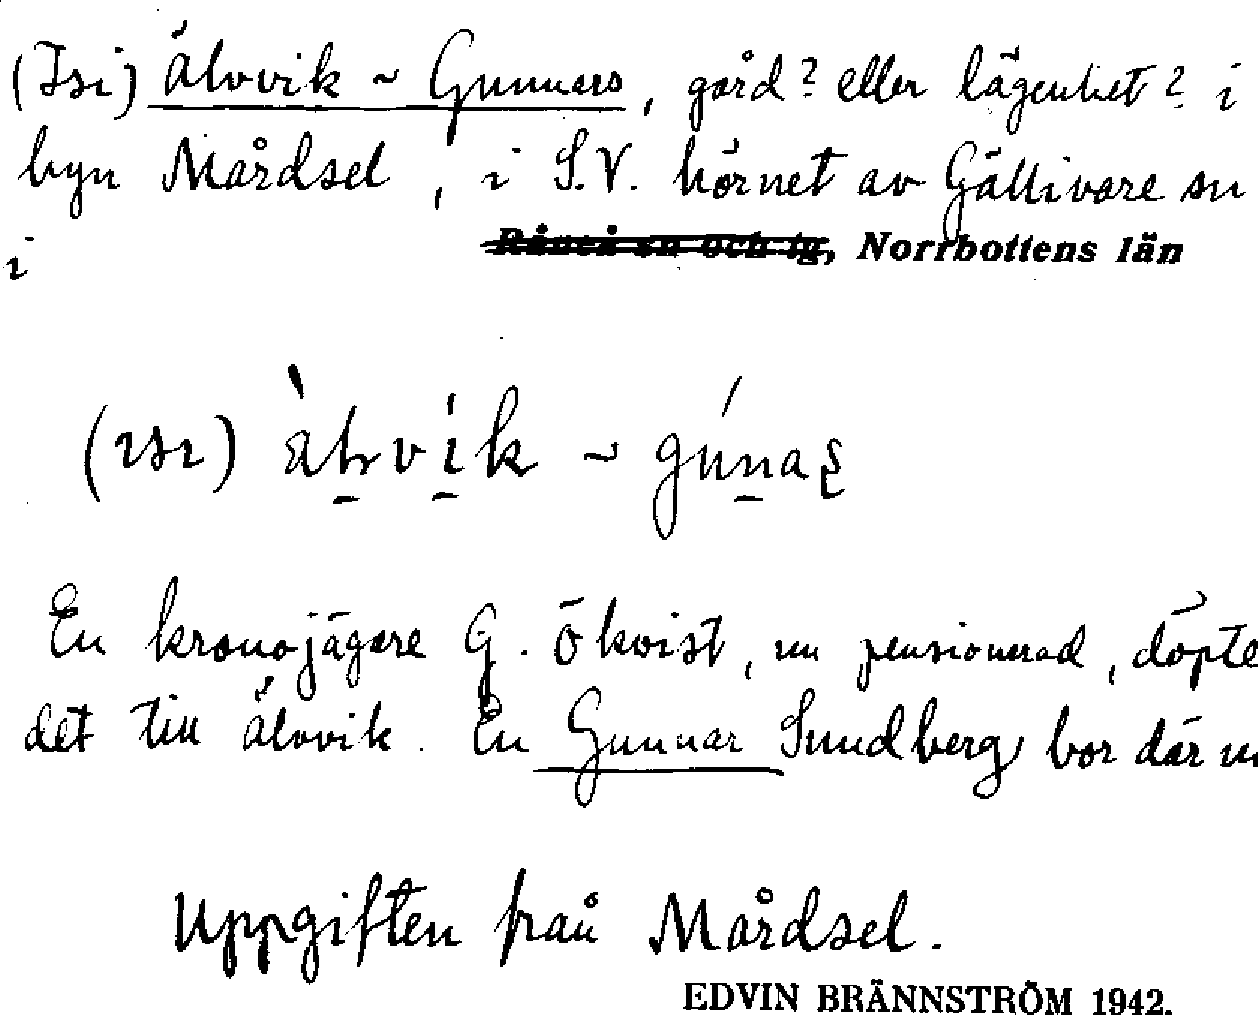 (Isi) Älvvik ~ Gunnars, gård? eller lägenhet? i
byn Mårdsel, i S.V. hörnet av Gällivare sn
i Råneå sn och tg, Norrbottens län
(ɪsɪ) ~
En kronojägare G. Ökvist, nu pensionerad, döpte
det till Älvvik. En Gunnar Sundberg bor där
Uppgiften från Mårdsel.
EDVIN BRÄNNSTRÖM 1942.